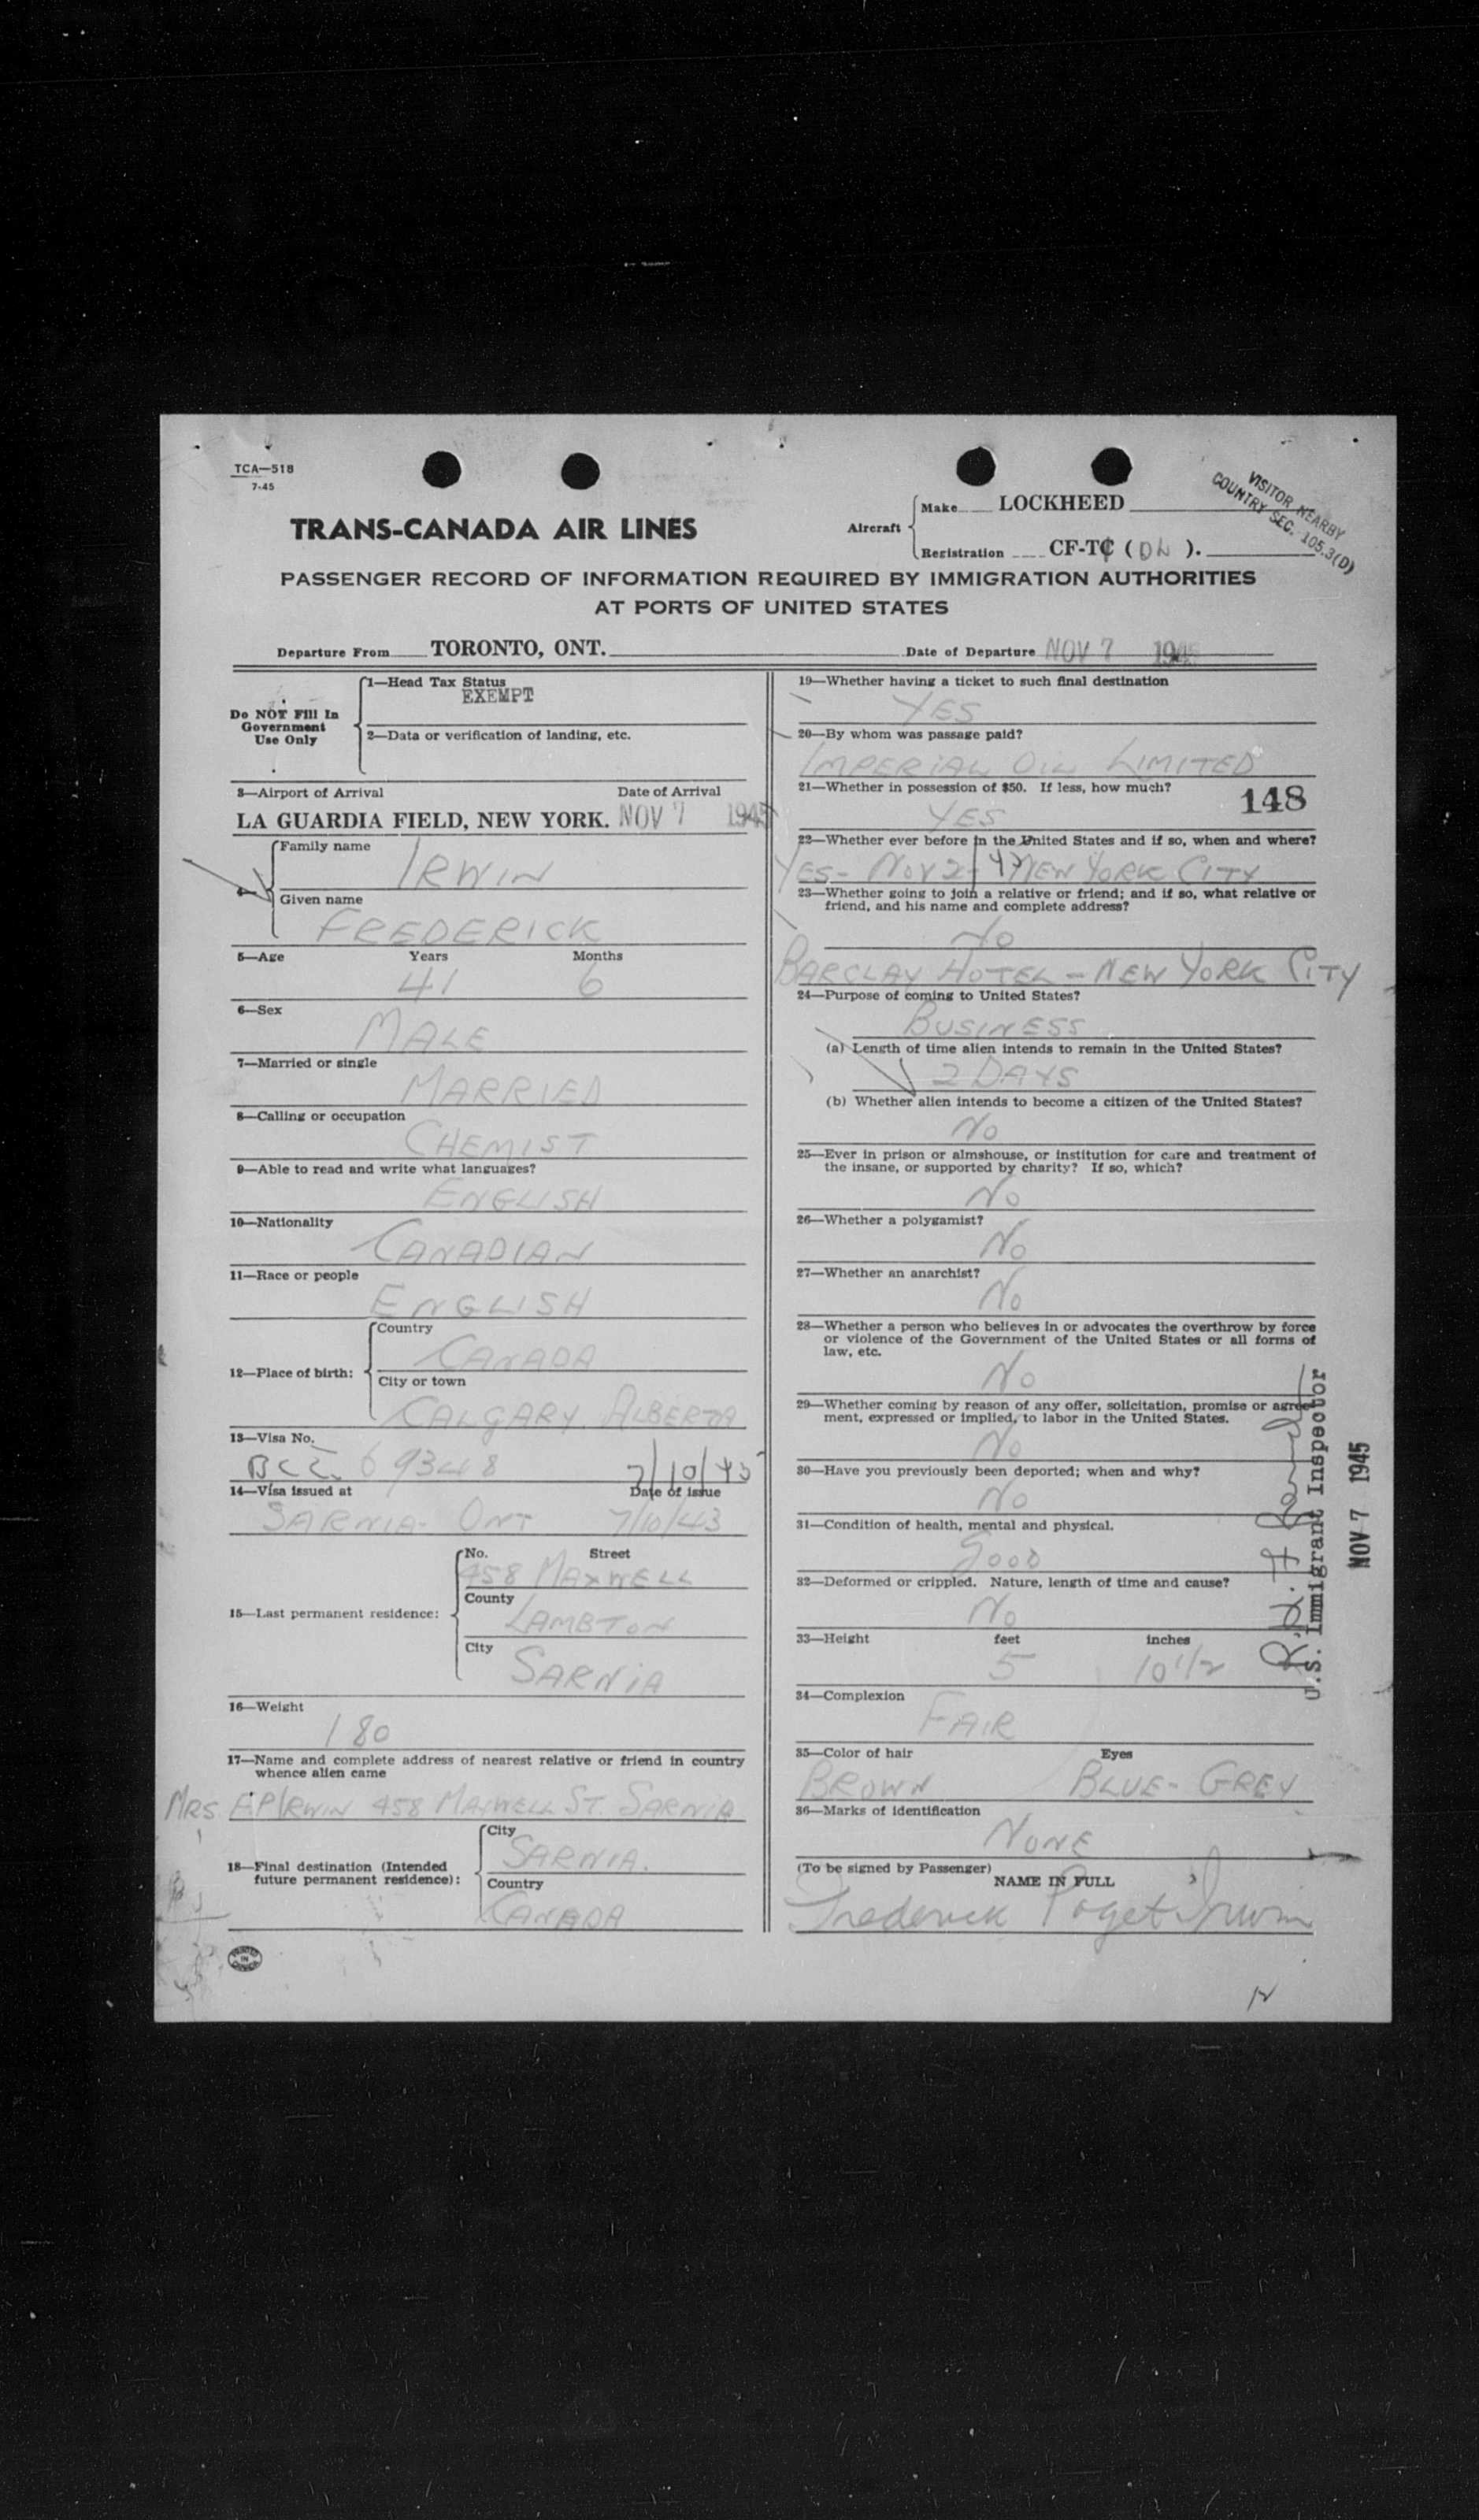 TCA—518
7-45
TRANS-CANADA AIR LINES
Aircraft
Make LOCKHEED
Registration CF-TC ( DL ).
VISITOR NEARBY
COUNTRY SEC. 105.3(D)
PASSENGER RECORD OF INFORMATION REQUIRED BY IMMIGRATION AUTHORITIES
AT PORTS OF UNITED STATES
Departure From TORONTO, ONT. Date of Departure NOV 7 1945
Do NOT Fill In
Government
Use Only
1—Head Tax Status
EXEMPT
2—Data or verification of landing, etc.
3—Airport of Arrival Date of Arrival
LA GUARDIA FIELD, NEW YORK. NOV 7 1945
4—
Family name
IRWIN
Given name
FREDERICK
5—Age Years Months
41 6
6—Sex
MALE
7—Married or single
MARRIED
8—Calling or occupation
CHEMIST
9—Able to read and write what languages?
ENGLISH
10—Nationality
CANADIAN
11—Race or people
ENGLISH
12—Place of birth:
Country
CANADA
City or town
CALGARY ALBERTA
13—Visa No.
BCC. 69348 7/10/43
14—Visa issued at Date of issue
SARNIA- ONT 7/10/43
15—Last permanent residence:
No. Street
458 MAXWELL
County
LAMBTON
City
SARNIA
16—Weight
180
17—Name and complete address of nearest relative or friend in country
whence alien came
MRS F.P IRWIN 458 MAXWELL ST. SARNIA
18—Final destination (Intended
future permanent residence):
City
SARNIA.
Country
CANADA
PRINTED
IN
CANADA
19—Whether having a ticket to such final destination
YES
20—By whom was passage paid?
IMPERIAL OIL LIMITED
21—Whether in possession of $50. If less, how much?
YES
148
22—Whether ever before in the United States and if so, when and where?
YES- NOV 2- NEW YORK CITY
23—Whether going to join a relative or friend; and if so, what relative or
friend, and his name and complete address?
NO
BARCLAY HOTEL - NEW YORK CITY
24—Purpose of coming to United States?
BUSINESS
(a) Length of time alien intends to remain in the United States?
2 DAYS
(b) Whether alien intends to become a citizen of the United States?
NO
25—Ever in prison or almshouse, or institution for care and treatment of
the insane, or supported by charity? If so, which?
NO
26—Whether a polygamist?
NO
27—Whether an anarchist?
NO
28—Whether a person who believes in or advocates the overthrow by force
or violence of the Government of the United States or all forms of
law, etc.
NO
29—Whether coming by reason of any offer, solicitation, promise or agree-
ment, expressed or implied, to labor in the United States.
NO
30—Have you previously been deported; when and why?
NO
31—Condition of health, mental and physical.
GOOD
32—Deformed or crippled. Nature, length of time and cause?
NO
33—Height feet inches
5 10 1/2
34—Complexion
FAIR
35—Color of hair Eyes
BROWN BLUE- GREY
36—Marks of identification
NONE
(To be signed by Passenger)
NAME IN FULL
Frederick Paget Irwin
U.S. Immigrant Inspector
NOV 7 1945